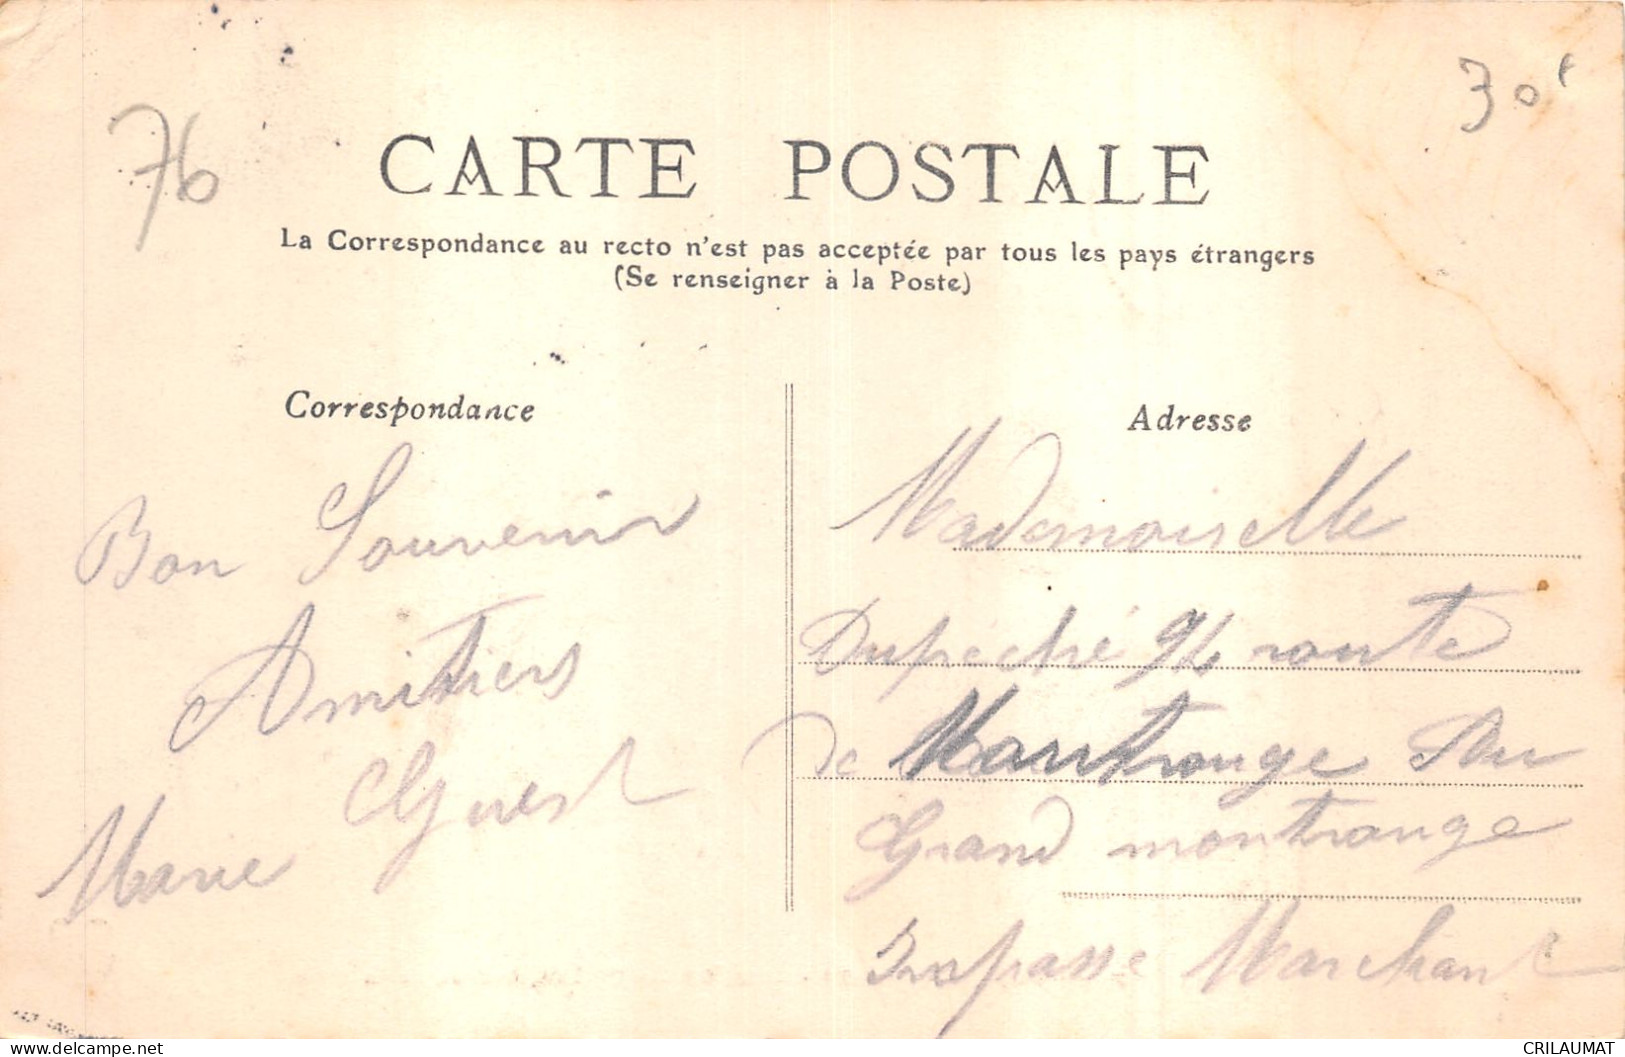 76
30F
CARTE POSTALE
La Correspondance au recto n'est pas acceptée par tous les pays étrangers
(Se renseigner à la Poste)
Correspondance
Bon Souvenir
Amitiers
Marie
Adresse
Mademoiselle
route
de Montrouge
Grand montrouge
Impasse Marchant
www.delcampe.net
CRILAUMAT